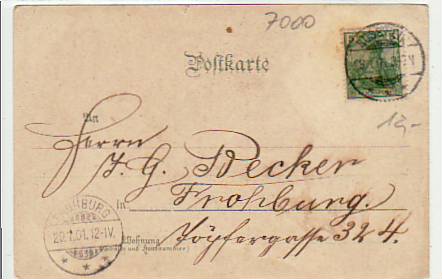 7000
Postkarte
12,-
An
Herrn
J. G. Becker
in Frohburg.
Wohnung Töpfergasse 324.
(Straße und Hausnummer)
FROHBURG
20.1.01.12-1V.